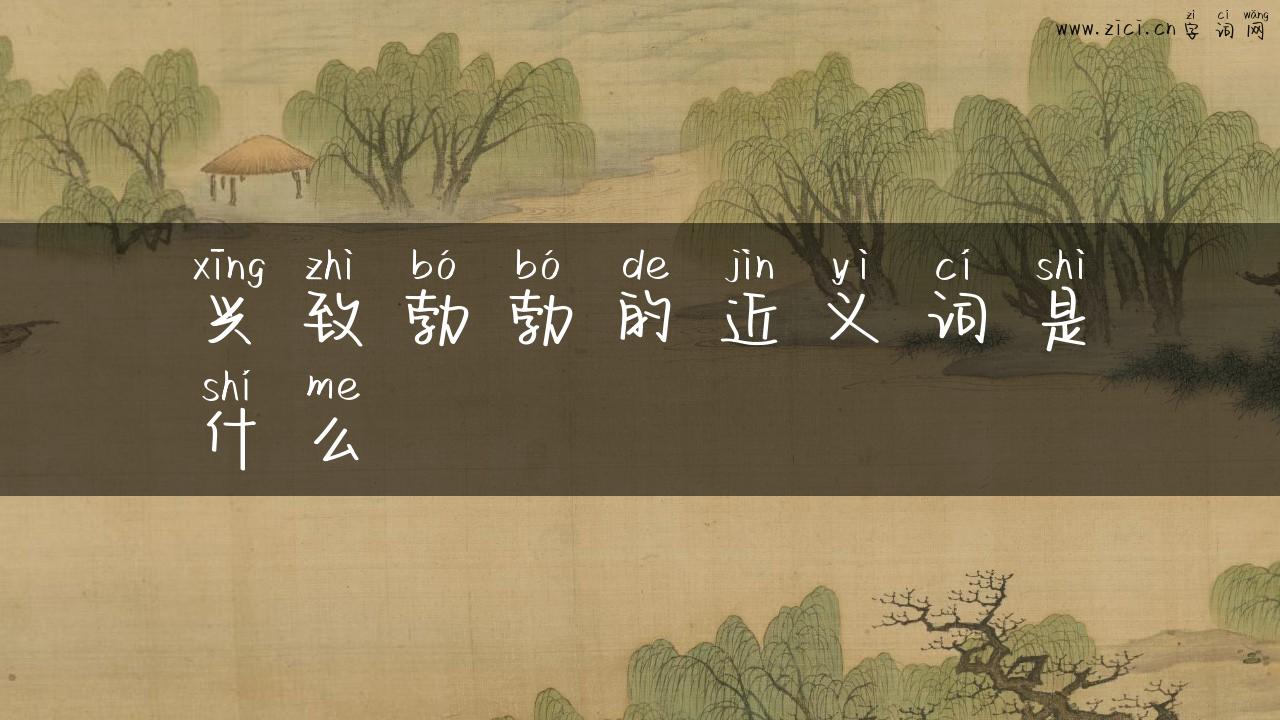 zì cí wǎng
www.zici.cn 字词网
xīng zhì bó bó de jìn yì cí shì
兴致勃勃的近义词是
shí me
什么